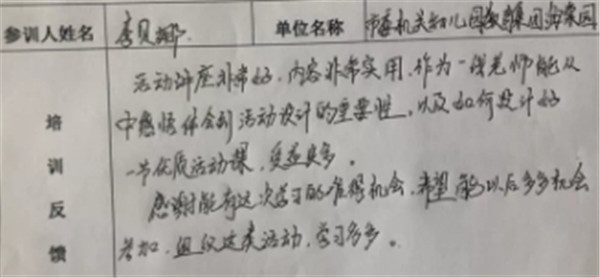 参训人姓名 李贝娜 单位名称 市委机关幼儿园教育集团海棠园
培训反馈
活动讲座非常好，内容非常实用，作为一线老师能从
中感悟体会到活动设计的重要性，以及如何设计好
一节优质活动课，受益良多。
感谢能有这次学习的难得机会，希望能以后多多机会
参加、组织这类活动，学习多多。